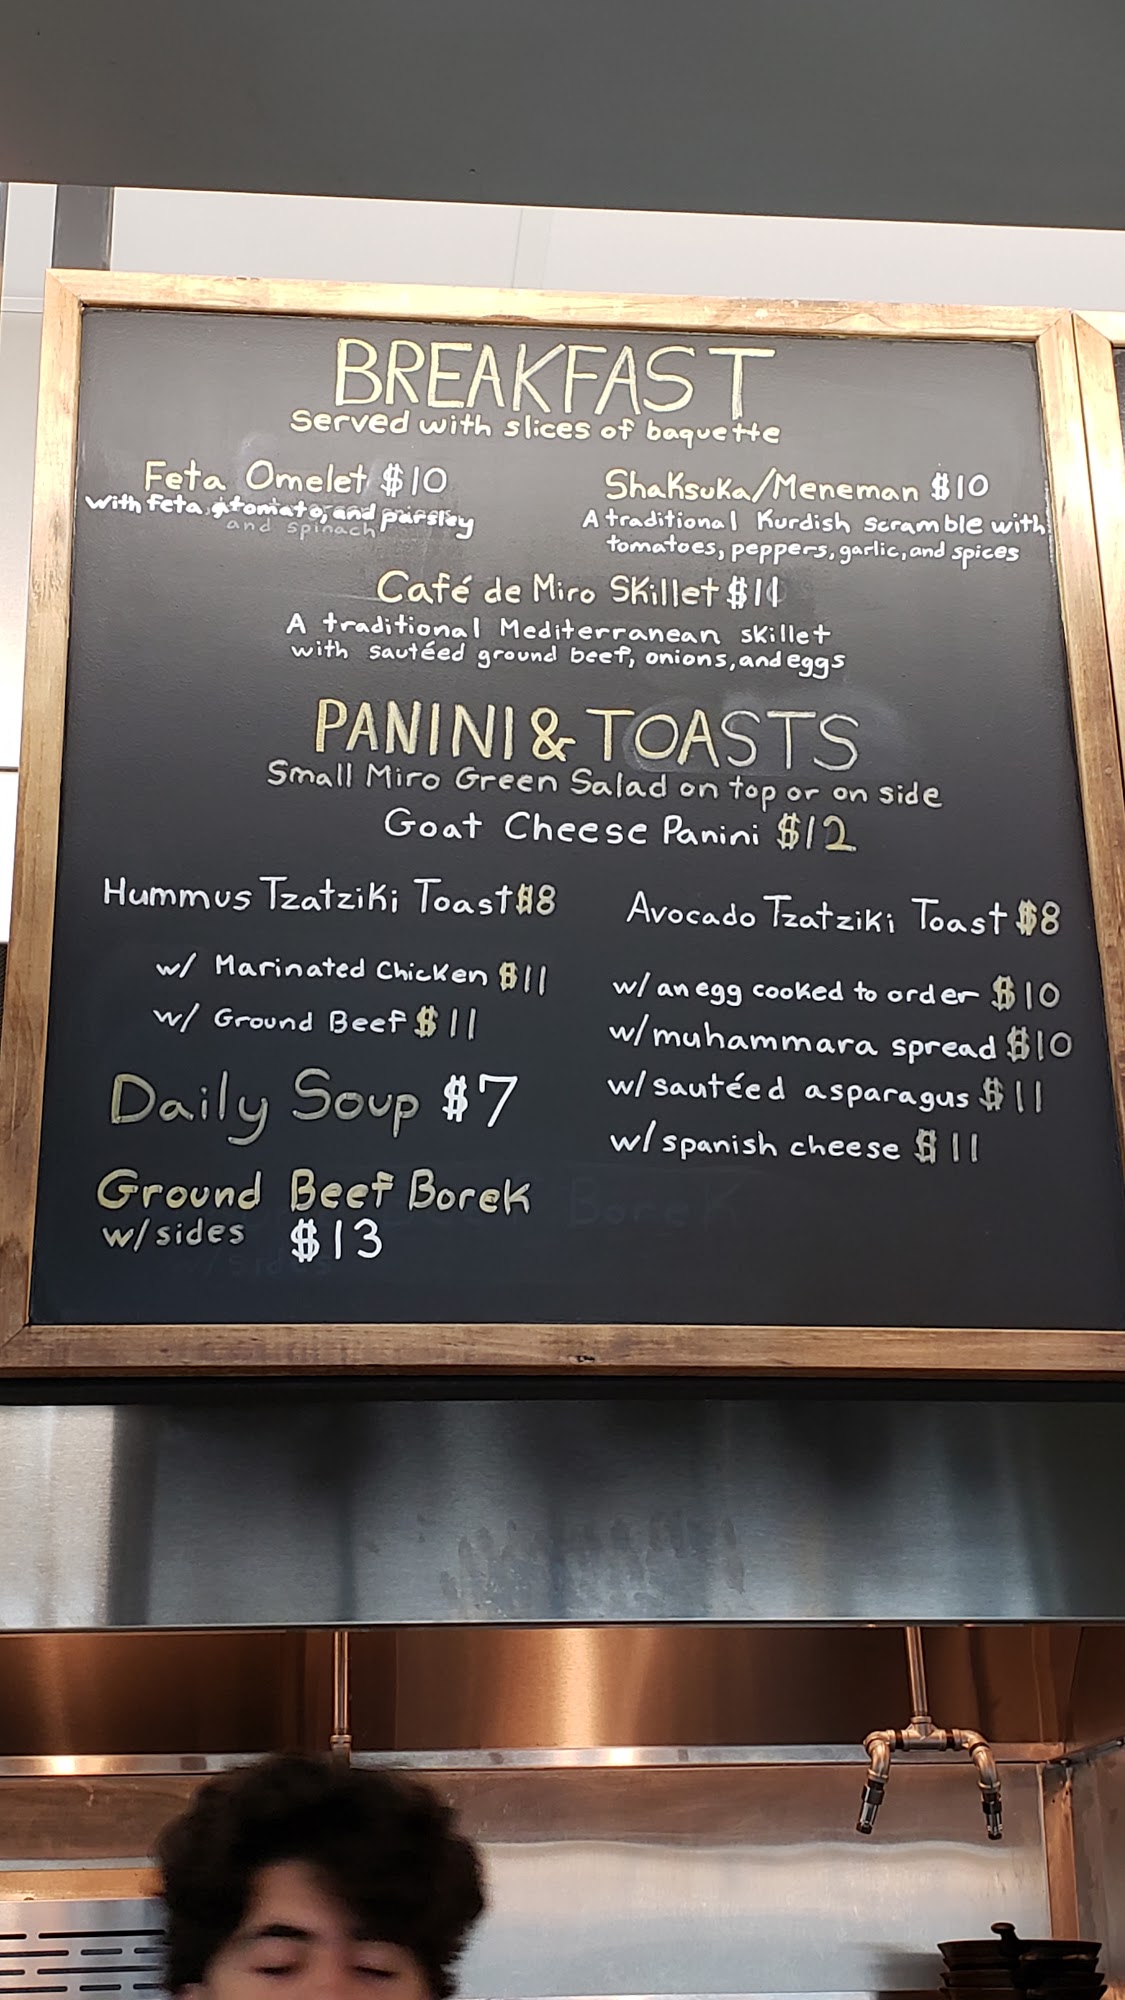 BREAKFAST
Served with slices of baguette
Feta Omelet $10
with feta, tomato, and parsley
and spinach
Shaksuka/Meneman $10
A traditional Kurdish scramble with
tomatoes, peppers, garlic, and spices
Café de Miro Skillet $11
A traditional Mediterranean skillet
with sautéed ground beef, onions, and eggs
PANINI & TOASTS
Small Miro Green Salad on top or on side
Goat Cheese Panini $12
Hummus Tzatziki Toast $8
w/ Marinated Chicken $11
w/ Ground Beef $11
Daily Soup $7
Ground Beef Borek
w/sides $13
Avocado Tzatziki Toast $8
w/ an egg cooked to order $10
w/muhammara spread $10
w/sautéed asparagus $11
w/spanish cheese $11